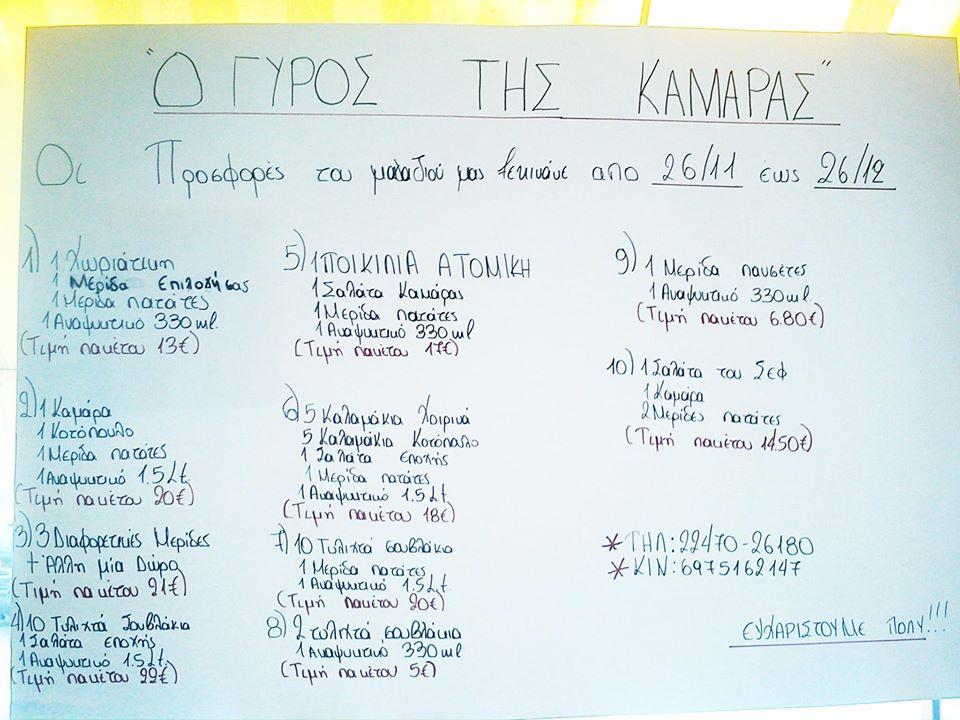 "Ο ΓΥΡΟΣ ΤΗΣ ΚΑΜΑΡΑΣ"
Οι Προσφορές του μαγαζιού μας ξεκινάνε απο 26/11 έως 26/12
1) 1 Χωριάτικη
1 Μερίδα Επιλογή σας
1 Μερίδα πατάτες
1 Αναψυκτικό 330 ml.
(Τιμή πακέτου 13€)
2) 1 Καμάρα
1 Κοτόπουλο
1 Μερίδα πατάτες
1 Αναψυκτικό 1.5 Lt.
(Τιμή πακέτου 20€)
3) 3 Διαφορετικές Μερίδες
+ Άλλη μία Δώρο
(Τιμή πακέτου 21€)
4) 10 Τυλιχτά Σουβλάκια
1 Σαλάτα εποχής
1 Αναψυκτικό 1.5 Lt.
(Τιμή πακέτου 22€)
5) 1 ΠΟΙΚΙΛΙΑ ΑΤΟΜΙΚΗ
1 Σαλάτα Καμάρας
1 Μερίδα πατάτες
1 Αναψυκτικό 330 ml
(Τιμή πακέτου 17€)
6) 5 Καλαμάκια Χοιρινά
5 Καλαμάκια Κοτόπουλο
1 Σαλάτα εποχής
1 Μερίδα πατάτες
1 Αναψυκτικό 1.5 Lt.
(Τιμή πακέτου 18€)
7) 10 Τυλιχτά σουβλάκια
1 Μερίδα πατάτες
1 Αναψυκτικό 1.5 Lt.
(Τιμή πακέτου 20€)
8) 2 τυλιχτά σουβλάκια
1 Αναψυκτικό 330 ml
(Τιμή πακέτου 5€)
9) 1 Μερίδα πανσέτες
1 Αναψυκτικό 330 ml.
(Τιμή πακέτου 6.80€)
10) 1 Σαλάτα του Σεφ
1 Καμάρα
2 Μερίδες πατάτες
(Τιμή πακέτου 14.50€)
* ΤΗΛ: 22470-26180
* ΚΙΝ: 6975162147
ΕΥΧΑΡΙΣΤΟΥΜΕ ΠΟΛΥ!!!